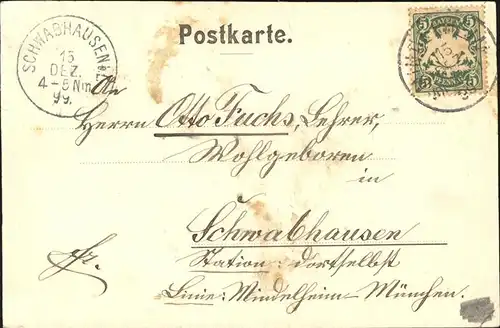 Postkarte.
SCHWABHAUSEN
15
DEZ.
4-5 Nm
99.
5 BAYERN 5
5 5
An
Herrn Otto Fuchs, Lehrer,
Wohlgeboren
in
Schwabhausen
fr.
Station: dortselbst
Linie: Mindelheim-München.